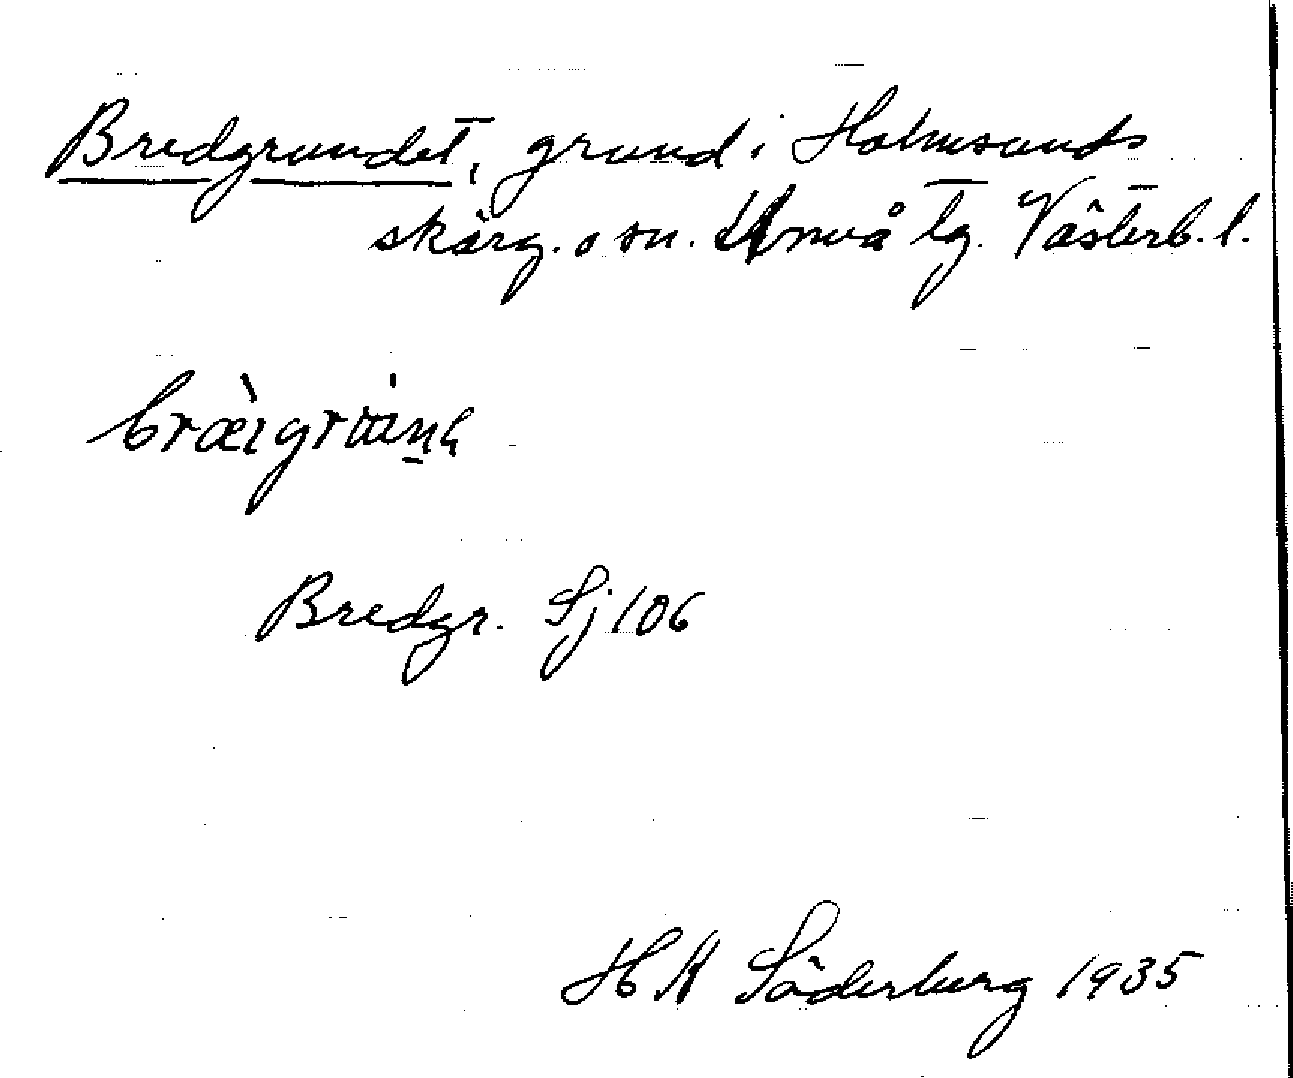 Bredgrundet, grund i Holmsunds
skärg. o sn. Umeå tg. Västerb. l.
Bredgr. Sj 106
H Söderberg 1935